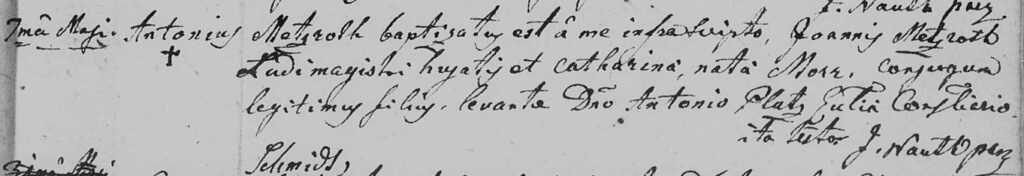 J. Nauth
7mâ Maji. Antonius Metzroth baptizatus est â me infrascripto, Joannis Metzroth
Ludimagistri hujatis et Catharina, nata Morr. conjugum
legitimus filius. levante Dno Antonio Platz
ita testor J. Nauth
Schmidt,